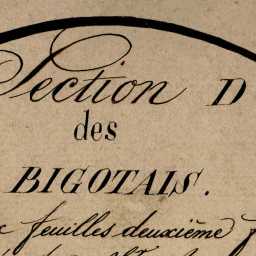 Section D
des
BIGOTAIS.
feuilles deuxième